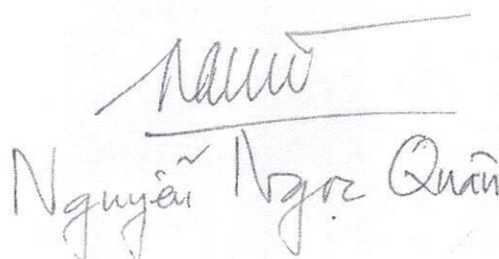 Nguyễn Ngọc Quân